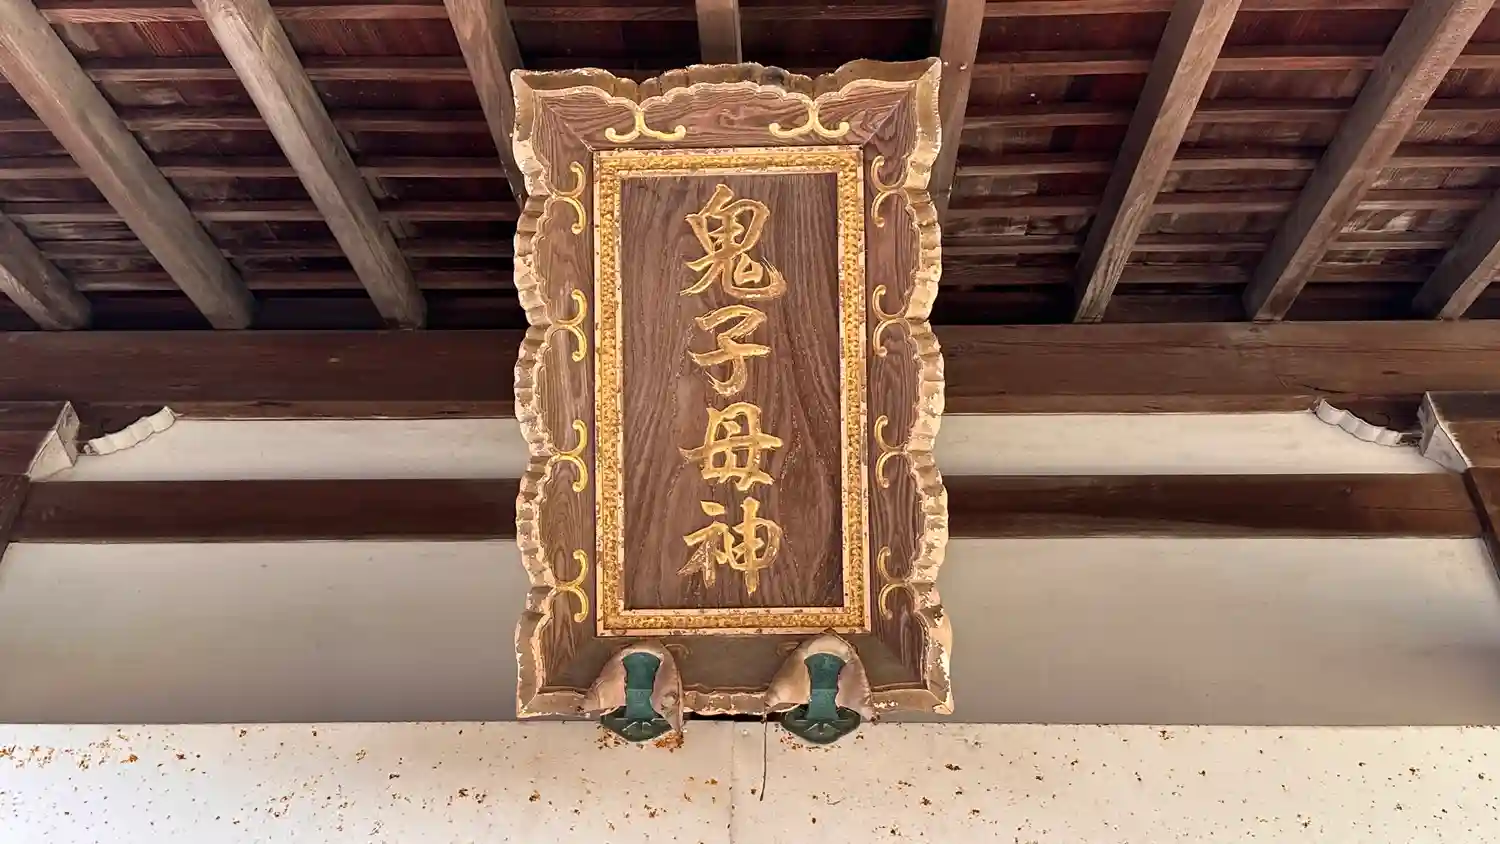 鬼子母神